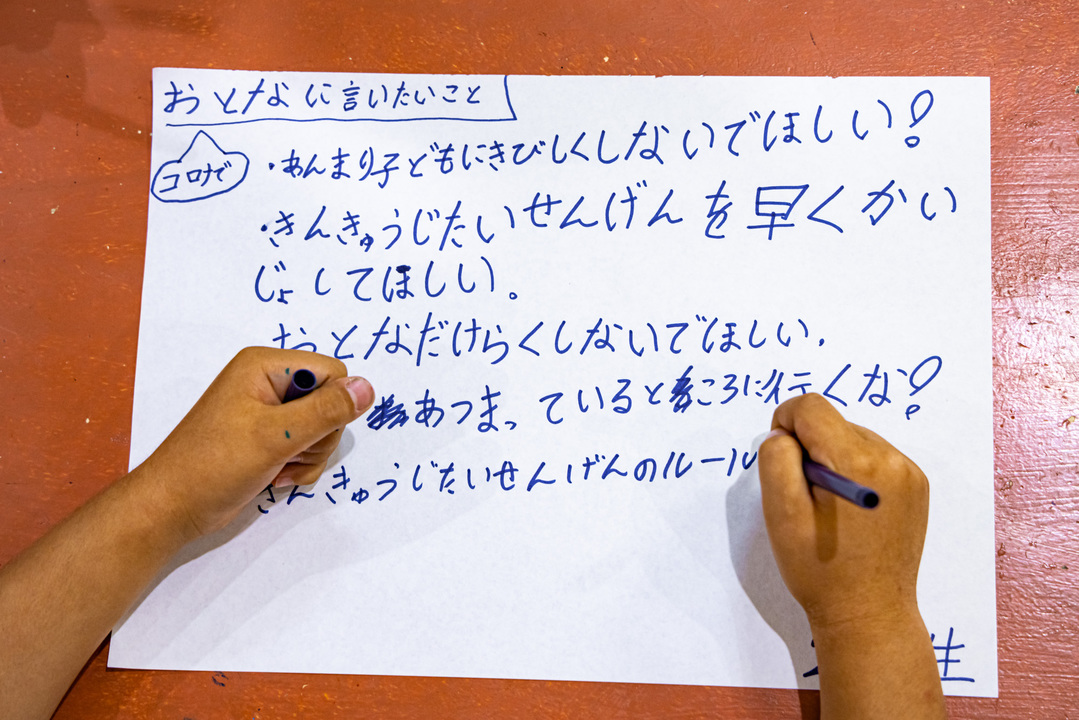 おとなに言いたいこと
コロナで
・あんまり子どもにきびしくしないでほしい!
・きんきゅうじたいせんげんを早くかい
じょしてほしい。
おとなだけらくしないでほしい.
あつまっているところに行くな!
きんきゅうじたいせんげんのルール
生